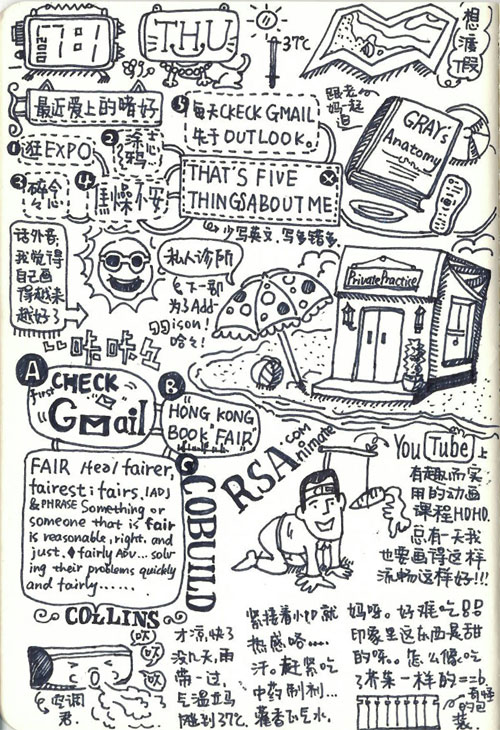 2010
7:1
THU
37℃
想渡假
最近爱上的嗜好
❶逛EXPO
❷涂鸦
❸碎念
❹焦躁不安
❺每天CKECK GMAIL
先于OUTLOOK。
THAT'S FIVE
THINGS ABOUT ME
少写英文.写多错多.
跟老妈一起追
GRAYs
Anatomy
话外音:
我觉得
自己画
得越来
越好了
私人诊所
下一部
为了Addison!
哈々!
Private Practice
咔咔
A
First
CHECK
"Gmail"
B
"HONG KONG
BOOK FAIR"
C
COBUILD
FAIR Heal fairer,
fairest: fairs. [ADJ
& PHRASE Something or
someone that is fair
is reasonable, right. and
just. fairly ADV... solv
ing their problems quickly
and fairly......
COLLINS
RSA.COM
Animate
You Tube上
有趣而实
用的动画
课程HOHO.
总有一天我
也要画得这样
流畅这样好!!!
空调君.
才凉快了
没几天,雨
带一过,
气温立马
飚到37℃.
紧接着小叩就
热感咯....
汗。赶紧吃
中药制剂...
藿香正气水.
妈呀。好难吃
印象里这东西是甜
的呀。怎么像吃
了芥茉一样的==b.
奇怪的包装.